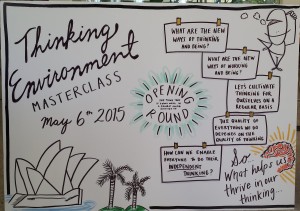 Thinking
Environment
MASTERCLASS
May 6th 2015
OPENING
ROUND
WHAT ARE THE NEW
WAYS OF THINKING
AND BEING?
WHAT ARE THE NEW
WAYS OF WORKING
AND BEING?
LET'S CULTIVATE
THINKING FOR
OURSELVES ON A
REGULAR BASIS
THE QUALITY OF
EVERYTHING WE DO
DEPENDS ON OUR
QUALITY OF THINKING
HOW CAN WE ENABLE
EVERYONE TO DO THEIR
INDEPENDENT
THINKING?
So...
What helps us
thrive in our
thinking...